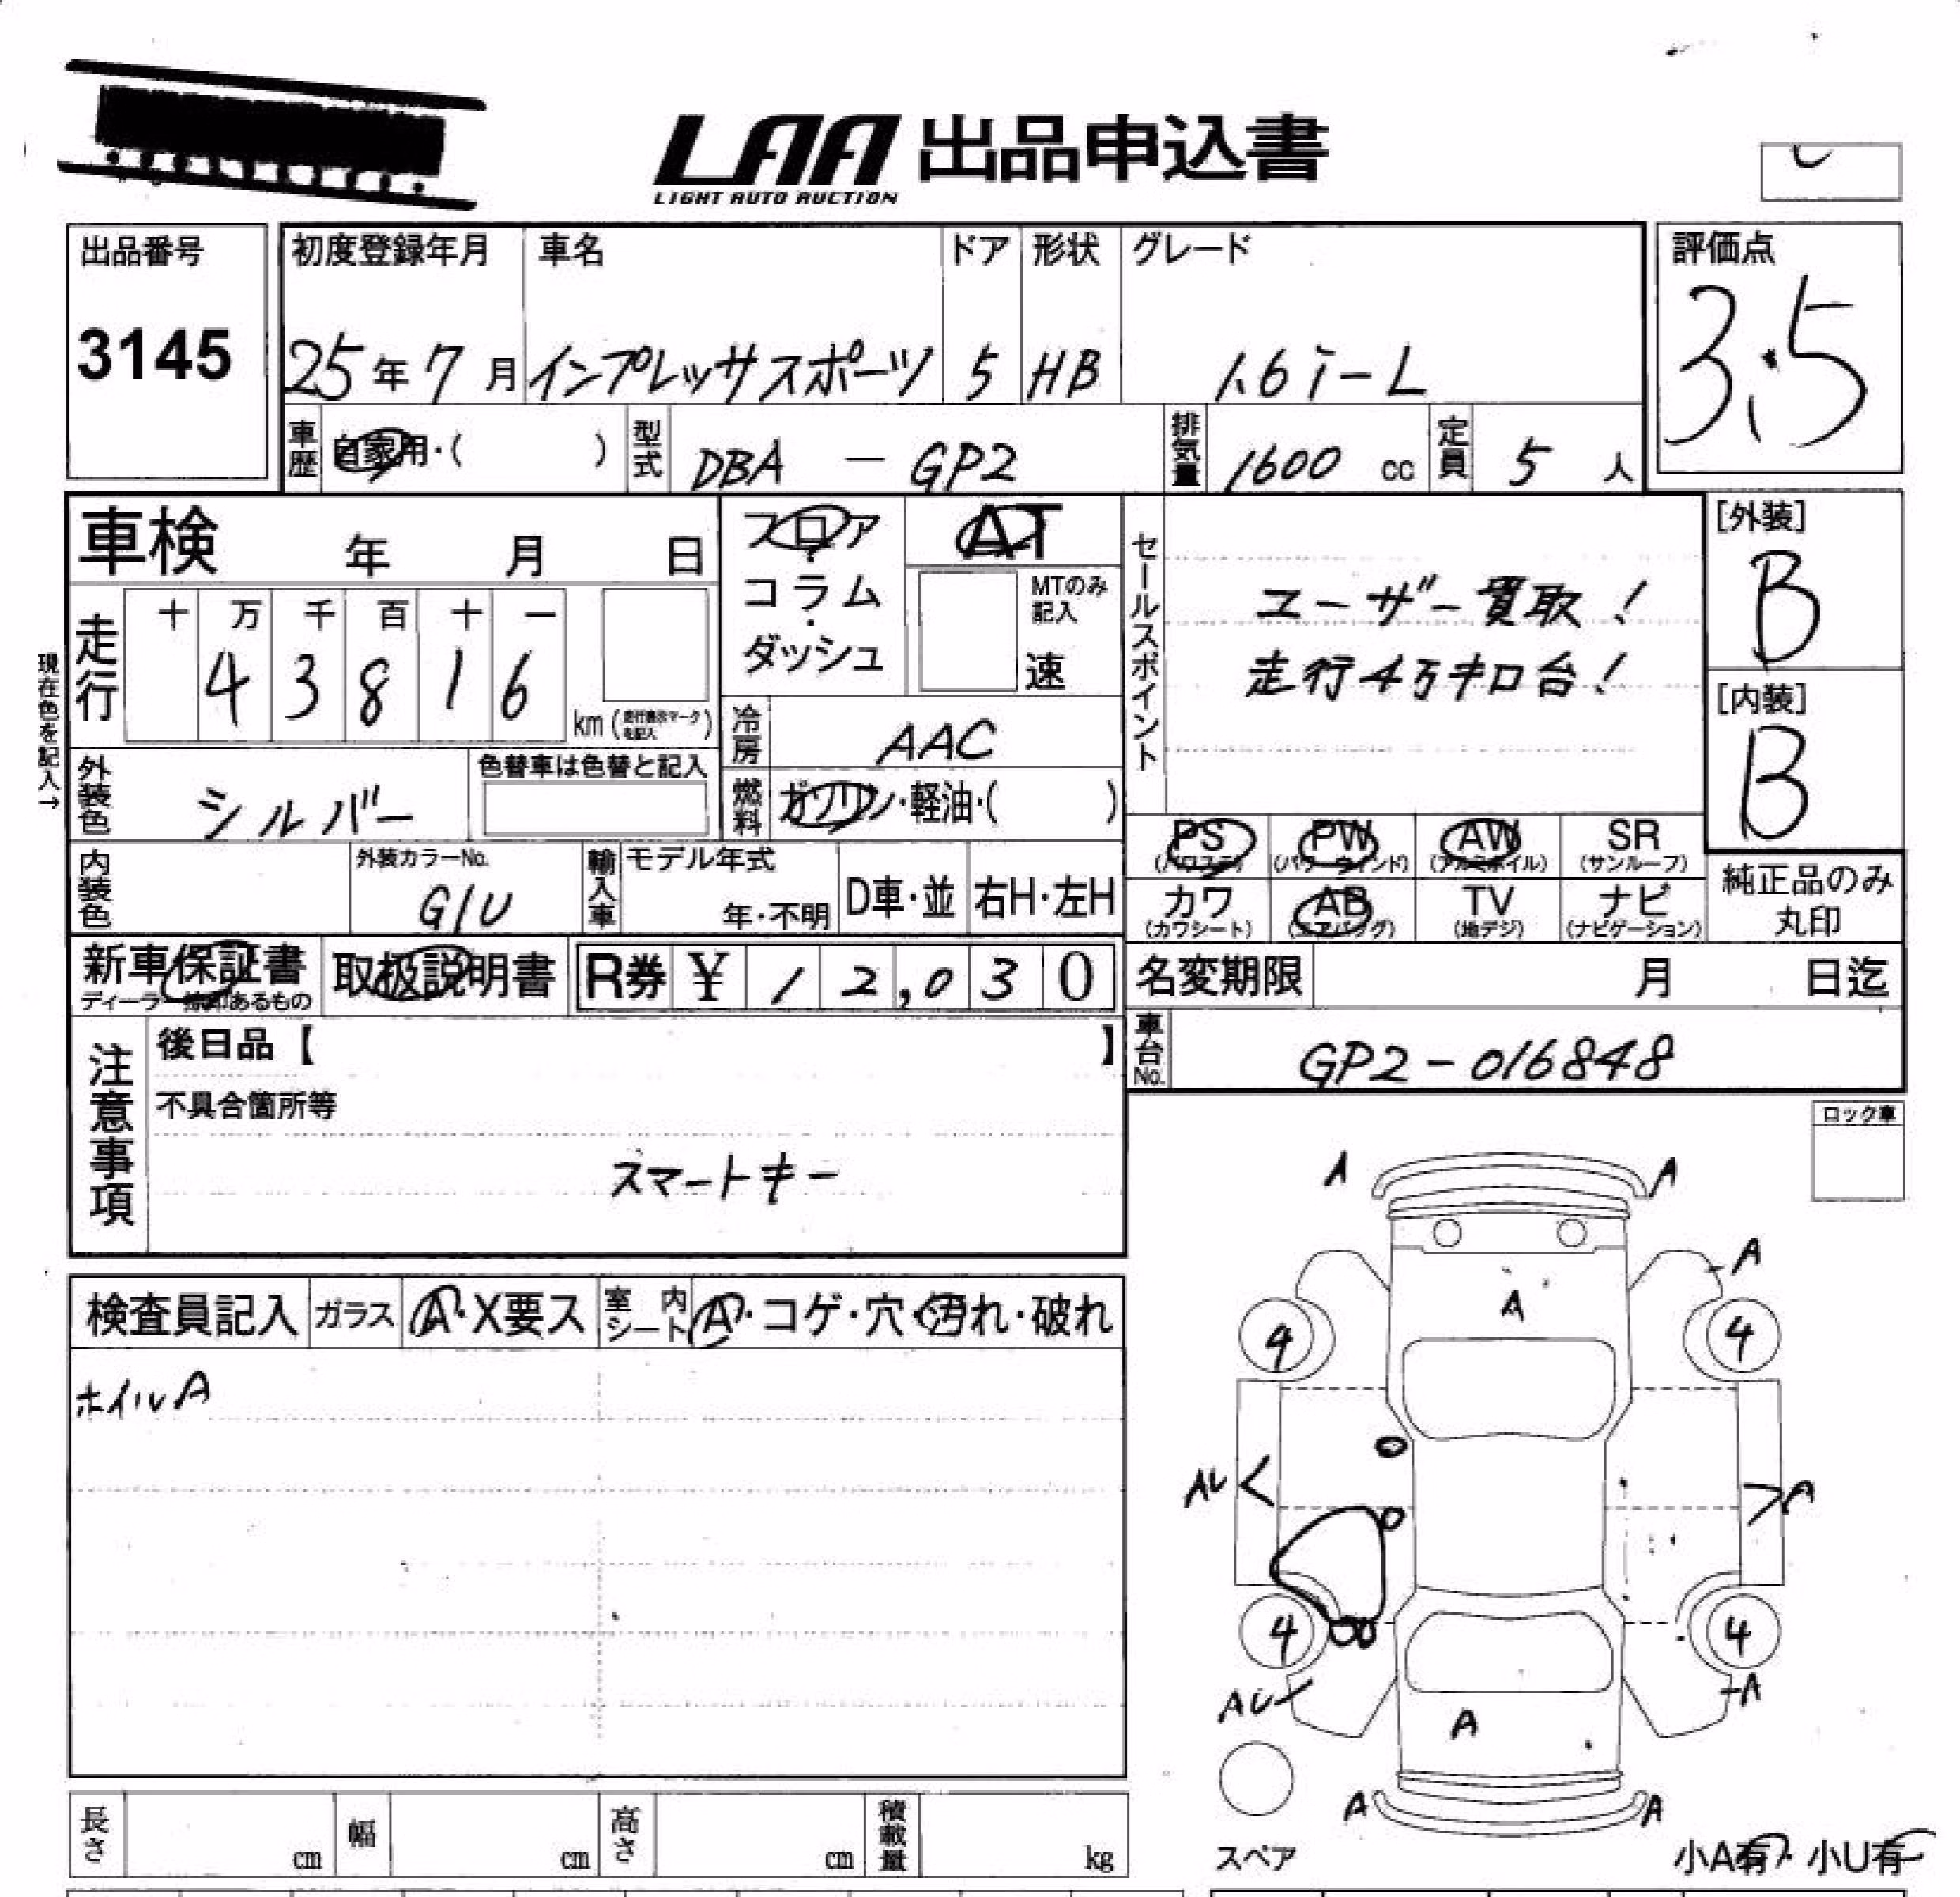 LAA 出品申込書
LIGHT AUTO AUCTION
出品番号
3145
初度登録年月 車名 ドア 形状 グレード
25年7月 インプレッサスポーツ 5 HB 1.6i-L
評価点
3.5
車歴 自家用・( ) 型式 DBA - GP2 排気量 1600 cc 定員 5 人
車検 年 月 日
フロア・コラム・ダッシュ
AT
MTのみ記入
速
セールスポイント
ユーザー買取!
走行4万キロ台!
[外装]
B
[内装]
B
現在色を記入→
走行 十 万 千 百 十 一
4 3 8 1 6
km (走行表示マークを記入)
冷房 AAC
外装色 シルバー 色替車は色替と記入
燃料 ガソリン・軽油・( )
PS (パワステ) PW (パワーウィンド) AW (アルミホイル) SR (サンルーフ)
カワ (カワシート) AB (エアバッグ) TV (地デジ) ナビ (ナビゲーション)
純正品のみ丸印
内装色 外装カラーNo. G1U 輸入車 モデル年式 年・不明 D車・並 右H・左H
新車保証書 取扱説明書 R券 ¥ 12,030
ディーラー捺印あるもの
名変期限 月 日迄
車台No. GP2-016848
注意事項
後日品【 】
不具合箇所等
スマートキー
ロック車
検査員記入 ガラス A・X要ス 室内シート A・コゲ・穴・汚れ・破れ
ホイルA
A A
A
A
4 4
AU A
4 4
AU A
A
A A
スペア
小A有・小U有
長さ cm 幅 cm 高さ cm 積載量 kg